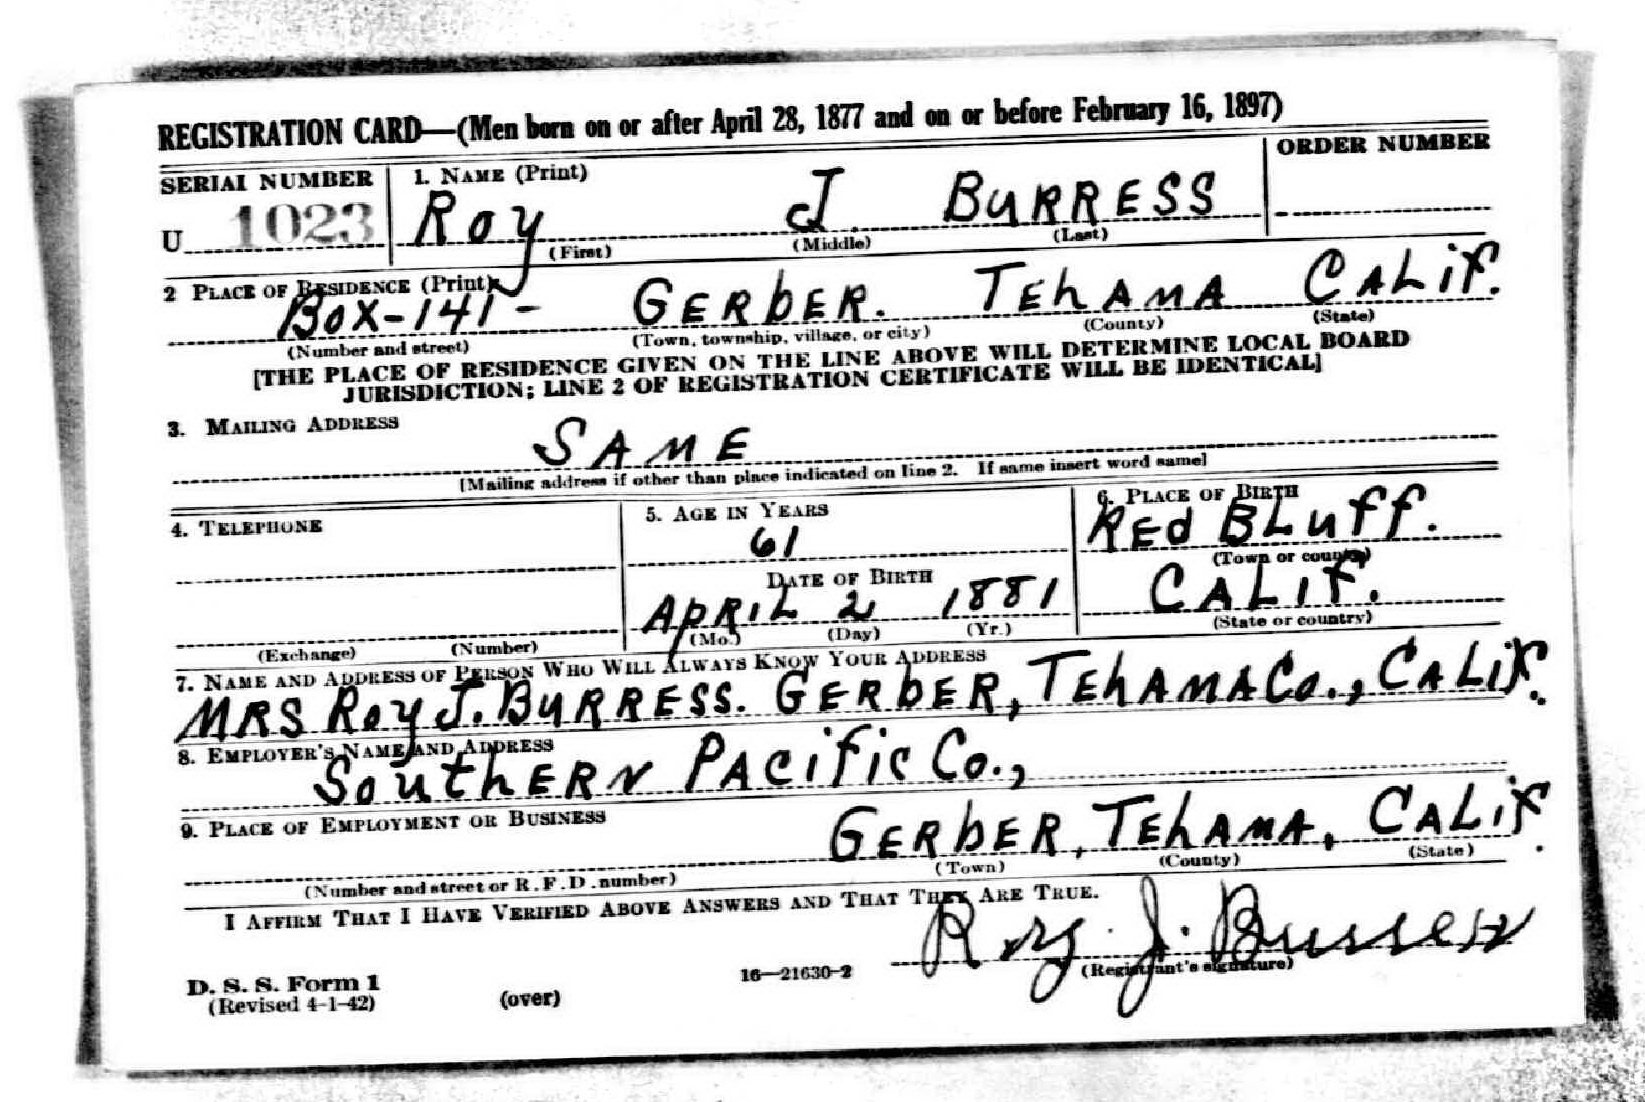 REGISTRATION CARD—(Men born on or after April 28, 1877 and on or before February 16, 1897)
SERIAL NUMBER
U 1023
1. NAME (Print)
Roy J. BURRESS
(First) (Middle) (Last)
ORDER NUMBER
2 PLACE OF RESIDENCE (Print)
BOX-141- GERBER. TEHAMA CALIF.
(Number and street) (Town, township, village, or city) (County) (State)
[THE PLACE OF RESIDENCE GIVEN ON THE LINE ABOVE WILL DETERMINE LOCAL BOARD
JURISDICTION; LINE 2 OF REGISTRATION CERTIFICATE WILL BE IDENTICAL]
3. MAILING ADDRESS
SAME
[Mailing address if other than place indicated on line 2. If same insert word same]
4. TELEPHONE
(Exchange) (Number)
5. AGE IN YEARS
61
DATE OF BIRTH
APRIL 2 1881
(Mo.) (Day) (Yr.)
6. PLACE OF BIRTH
RED BLUFF.
(Town or county)
CALIF.
(State or country)
7. NAME AND ADDRESS OF PERSON WHO WILL ALWAYS KNOW YOUR ADDRESS
MRS Roy J. BURRESS. GERBER, TEHAMA Co., CALIF.
8. EMPLOYER'S NAME AND ADDRESS
SOUTHERN PACIFIC Co.,
9. PLACE OF EMPLOYMENT OR BUSINESS
GERBER, TEHAMA, CALIF.
(Number and street or R. F. D. number) (Town) (County) (State)
I AFFIRM THAT I HAVE VERIFIED ABOVE ANSWERS AND THAT THEY ARE TRUE.
Roy J. Burress
(Registrant's signature)
D. S. S. Form 1
(Revised 4-1-42) (over) 16—21630-2